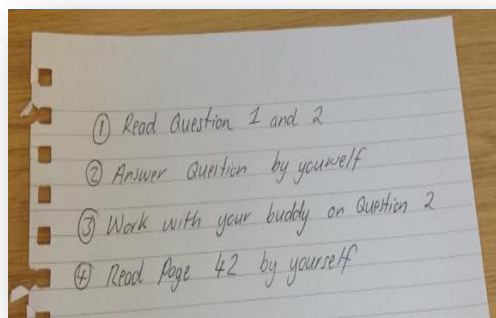 ① Read Question 1 and 2
② Answer Question by youwelf
③ Work with your buddy on Question 2
④ Read Page 42 by yourself